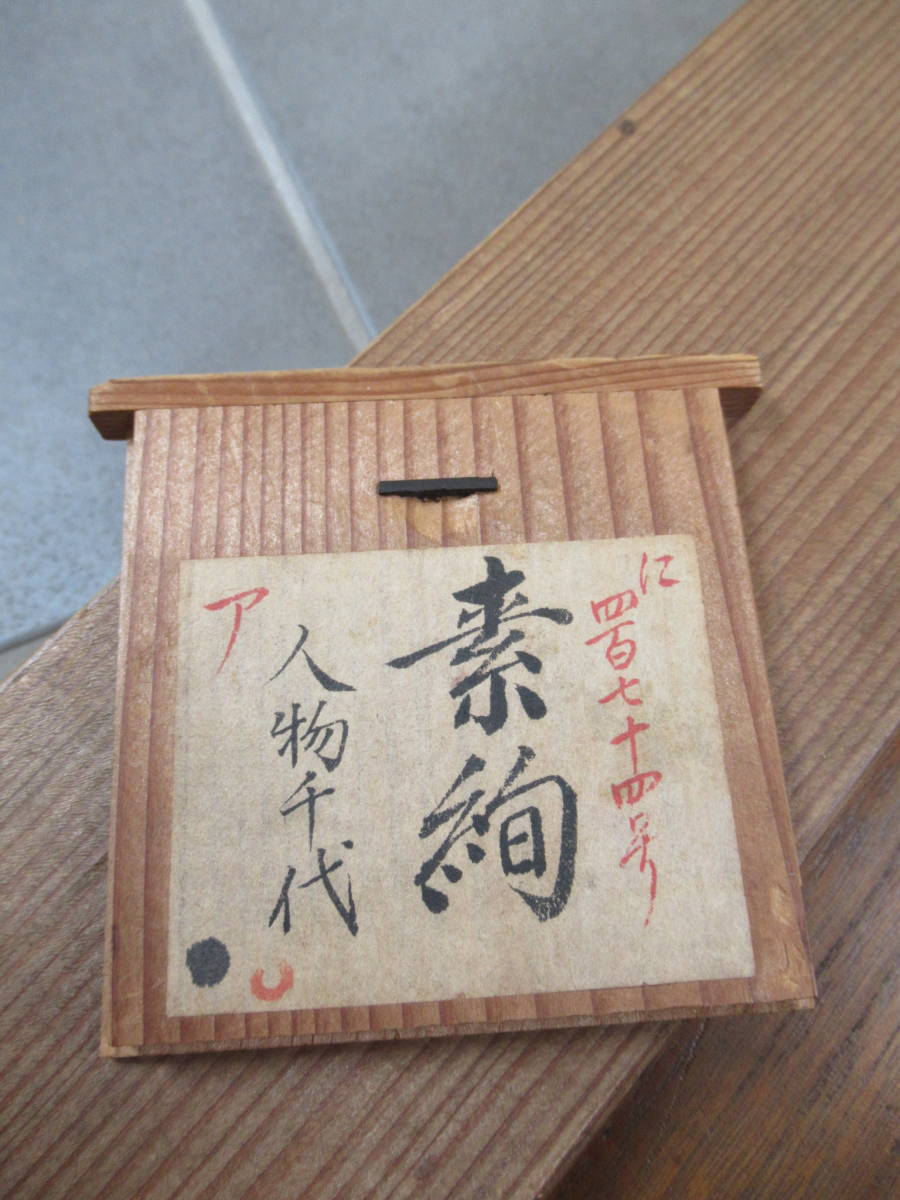 に四百七十四号
素絢
人物千代
ア